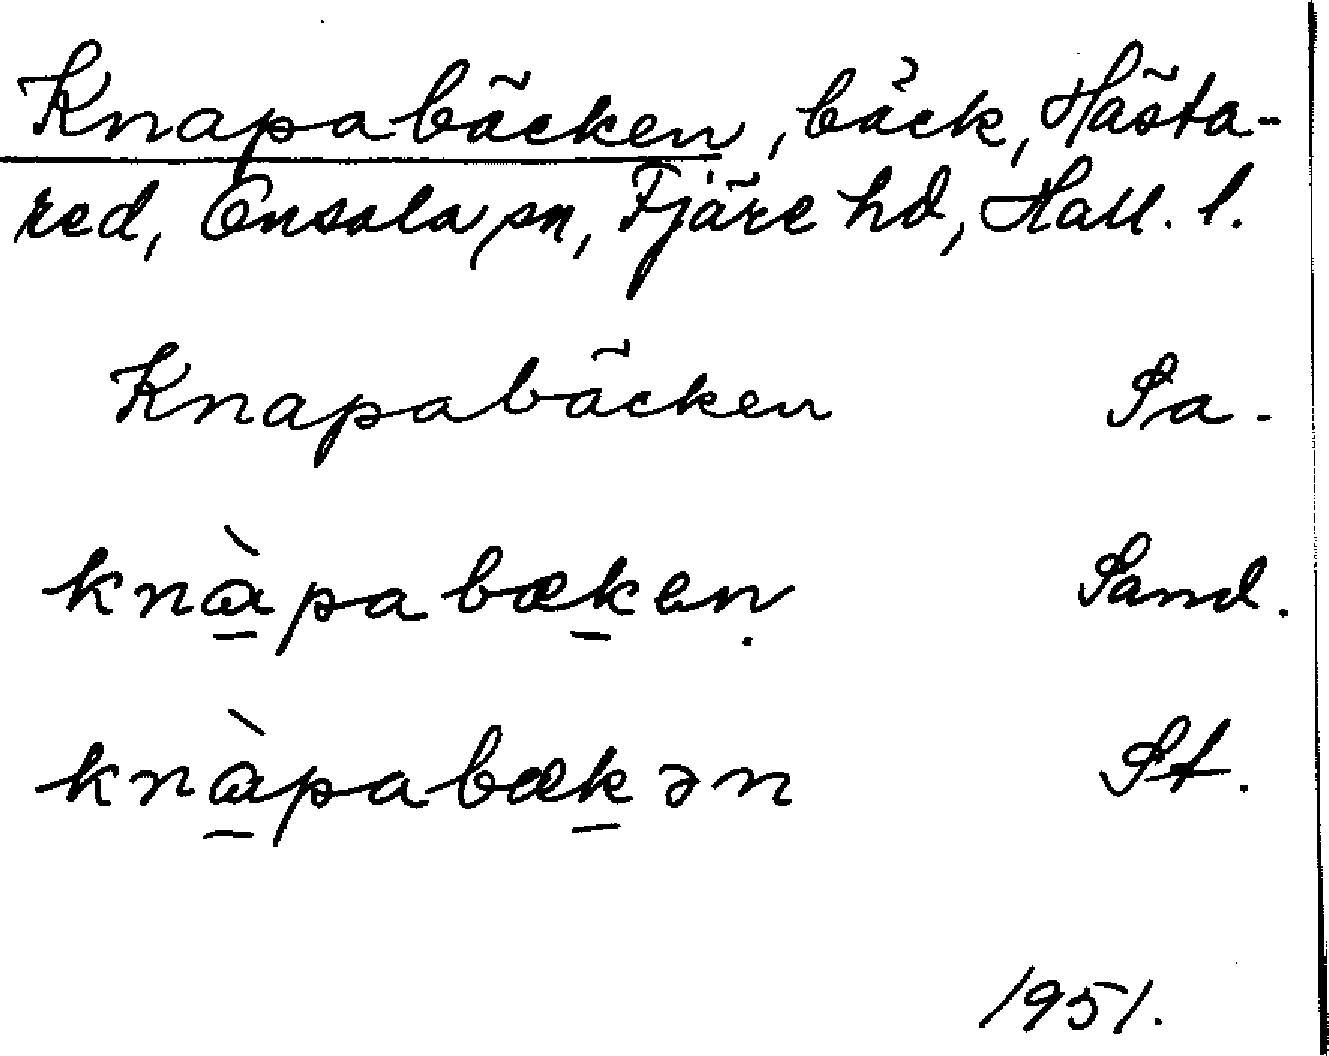 Knapabäcken, bäck, Hästa-
red, Onsala sn, Fjäre hd, Hall. l.
Knapabäcken Sa.
knɑ̱̀pabæḵen̥ Sand.
knɑ̱̀pabæḵən St.
1951.